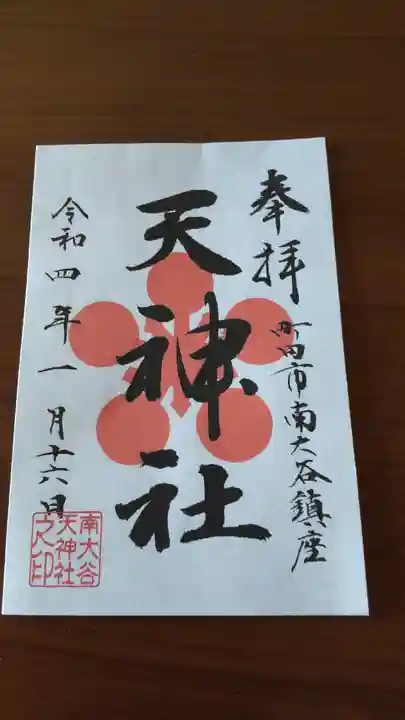 奉拝
町田市南大谷鎮座
天神社
令和四年一月十六日
南大谷
天神社
之印